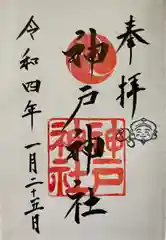 奉拝
神戸神社
神戸神社
令和四年
一月二十五日